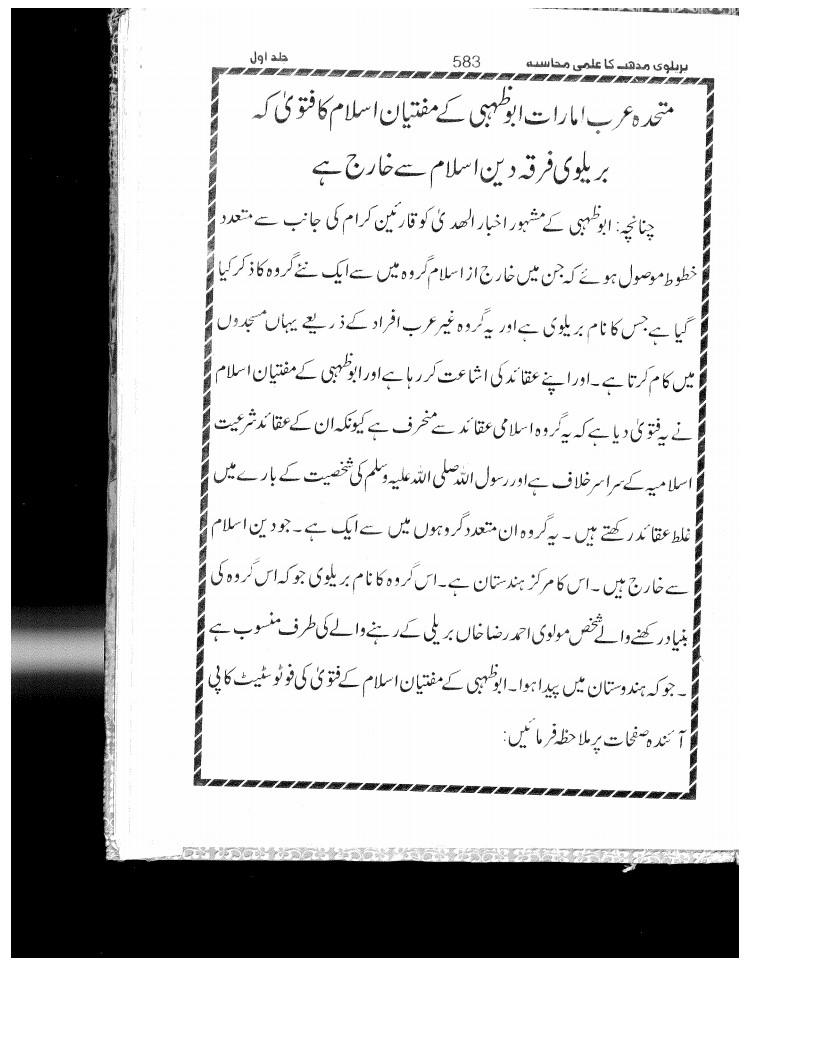 بریلوی مذھب کا علمی محاسبہ 583 جلد اول
متحدہ عرب امارات ابوظہبی کے مفتیان اسلام کا فتویٰ کہ
بریلوی فرقہ دین اسلام سے خارج ہے
چنانچہ: ابوظہبی کے مشہور اخبار الھدیٰ کو قارئین کرام کی جانب سے متعدد
خطوط موصول ہوئے کہ جن میں خارج از اسلام گروہ میں سے ایک نئے گروہ کا ذکر کیا
گیا ہے جس کا نام بریلوی ہے اور یہ گروہ غیر عرب افراد کے ذریعے یہاں مسجدوں
میں کام کرتا ہے۔ اور اپنے عقائد کی اشاعت کر رہا ہے اور ابوظہبی کے مفتیان اسلام
نے یہ فتویٰ دیا ہے کہ یہ گروہ اسلامی عقائد سے منحرف ہے کیونکہ ان کے عقائد شرعیت
اسلامیہ کے سراسر خلاف ہے اور رسول اللہ صلی اللہ علیہ وسلم کی شخصیت کے بارے میں
غلط عقائد رکھتے ہیں۔ یہ گروہ ان متعدد گروہوں میں سے ایک ہے۔ جو دین اسلام
سے خارج ہیں۔ اس کا مرکز ہندستان ہے۔ اس گروہ کا نام بریلوی جو کہ اس گروہ کی
بنیاد رکھنے والے شخص مولوی احمد رضا خاں بریلی کے رہنے والے کی طرف منسوب ہے
۔ جو کہ ہندوستان میں پیدا ہوا۔ ابوظہبی کے مفتیان اسلام کے فتویٰ کی فوٹو سٹیٹ کاپی
آئندہ صفحات پر ملاحظہ فرمائیں: